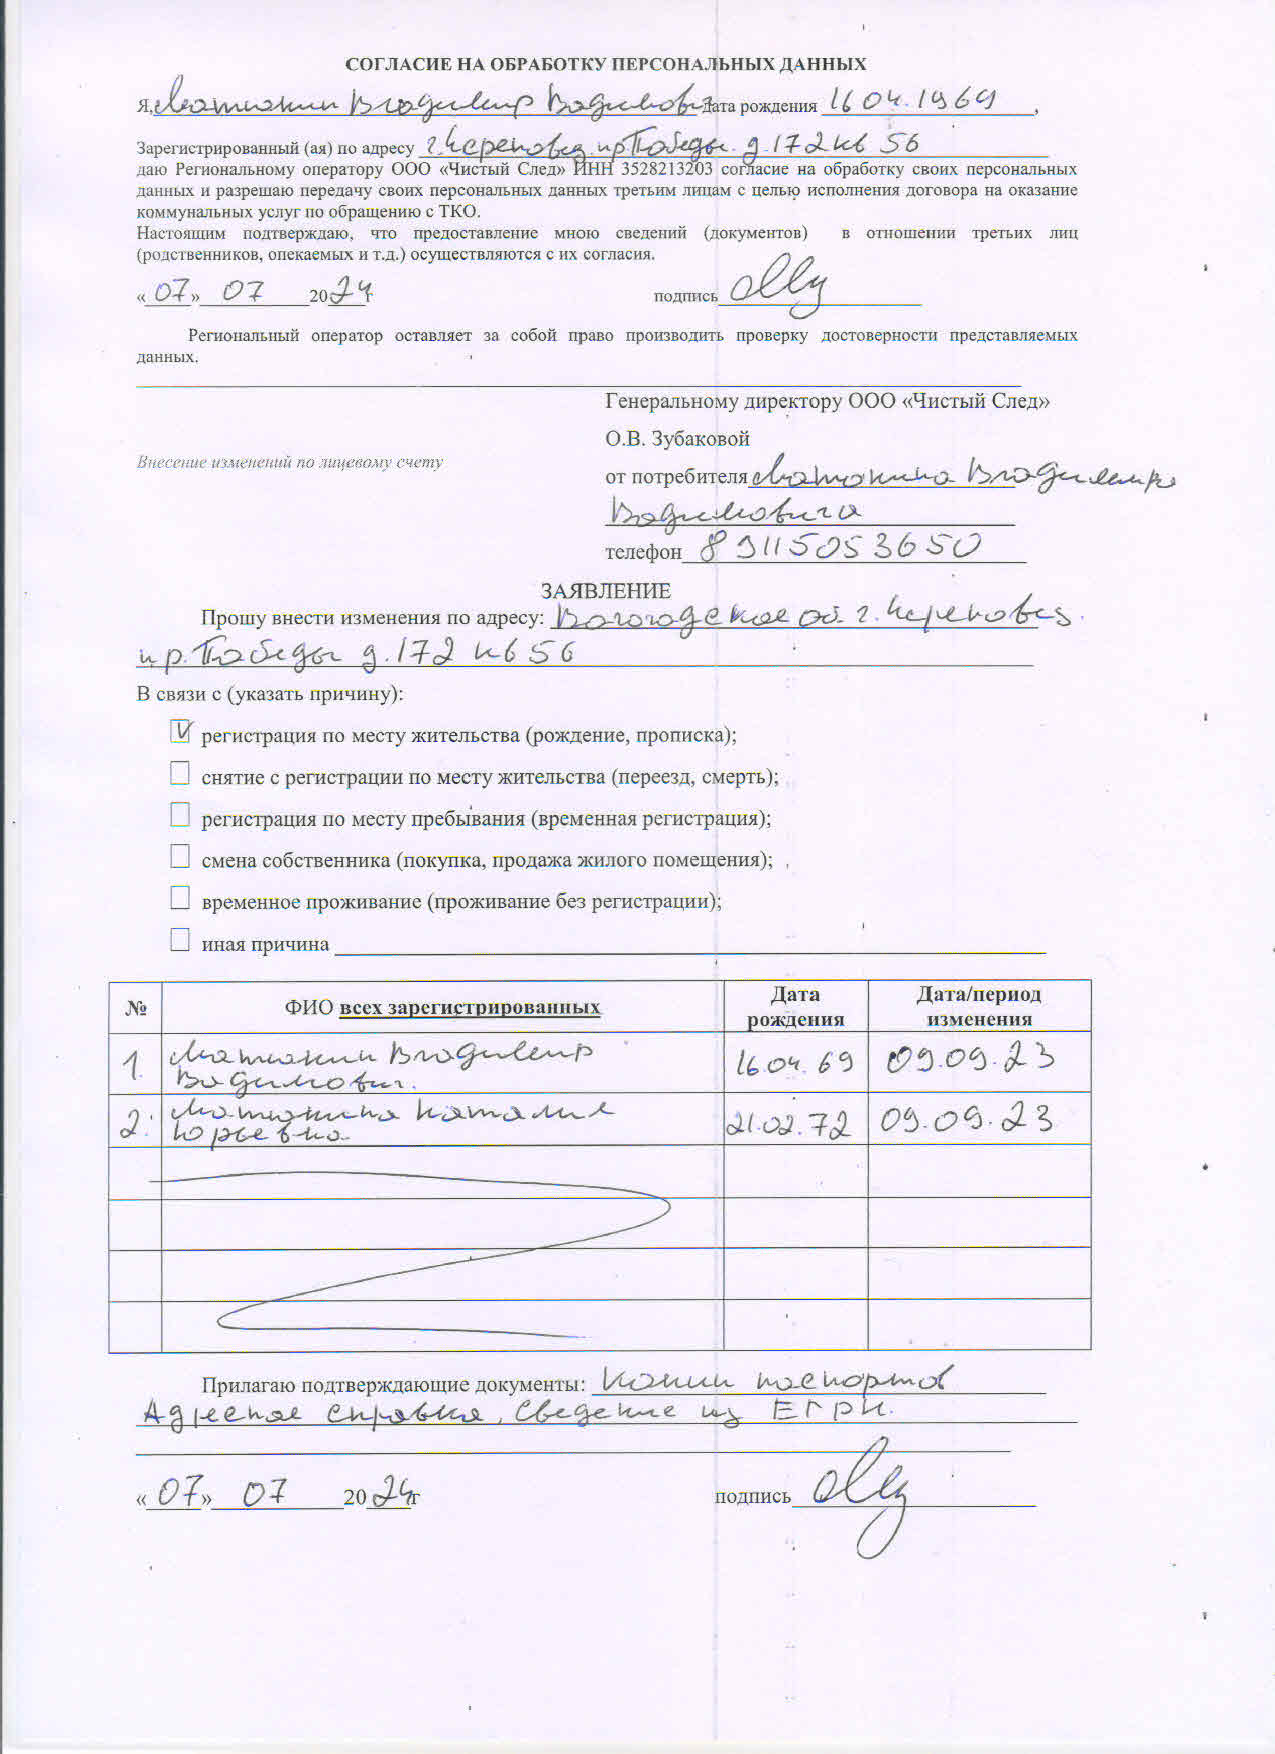 СОГЛАСИЕ НА ОБРАБОТКУ ПЕРСОНАЛЬНЫХ ДАННЫХ
Я, Матюнин Владимир Вадимович дата рождения 16 04. 1969,
Зарегистрированный (ая) по адресу г. Череповец. пр. Победы. д. 172 кв 56
даю Региональному оператору ООО «Чистый След» ИНН 3528213203 согласие на обработку своих персональных
данных и разрешаю передачу своих персональных данных третьим лицам с целью исполнения договора на оказание
коммунальных услуг по обращению с ТКО.
Настоящим подтверждаю, что предоставление мною сведений (документов) в отношении третьих лиц
(родственников, опекаемых и т.д.) осуществляются с их согласия.
«07» 07 2024г подпись
Региональный оператор оставляет за собой право производить проверку достоверности представляемых
данных.
Генеральному директору ООО «Чистый След»
О.В. Зубаковой
Внесение изменений по лицевому счету
от потребителя Матюнина Владимира
Вадимовича
телефон 89115053650
ЗАЯВЛЕНИЕ
Прошу внести изменения по адресу: Вологодская об. г. Череповец.
пр. Победы д. 172 кв 56
В связи с (указать причину):
V регистрация по месту жительства (рождение, прописка);
снятие с регистрации по месту жительства (переезд, смерть);
регистрация по месту пребывания (временная регистрация);
смена собственника (покупка, продажа жилого помещения);
временное проживание (проживание без регистрации);
иная причина
№ ФИО всех зарегистрированных Дата рождения Дата/период изменения
1. Матюнин Владимир Вадимович. 16.04. 69 09.09. 23
2. Матюнина Наталия Юрьевна. 21.02. 72 09.09. 23
Прилагаю подтверждающие документы: Копии паспортов
Адресная справка, Сведение из ЕГРН.
«07» 07 2024г подпись